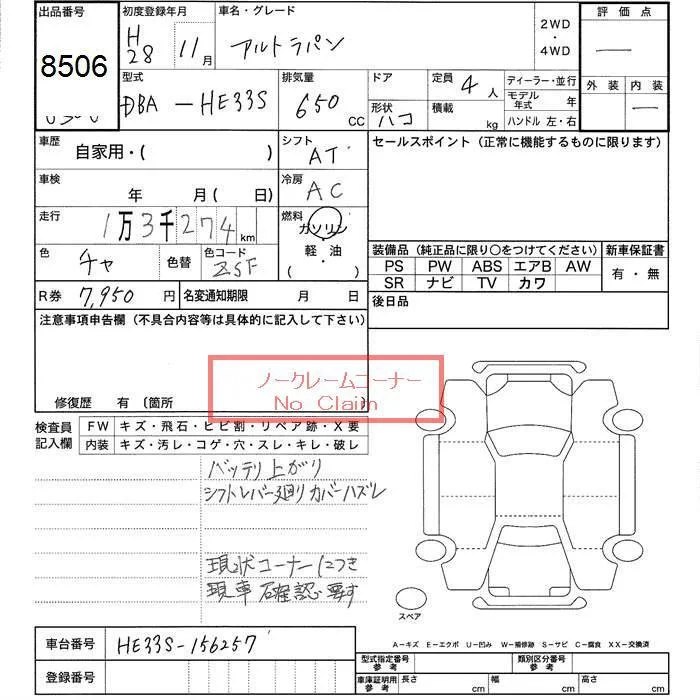 出品番号
8506
初度登録年月
H
28 11月
車名・グレード
アルトラパン
2WD
・
4WD
評価点
—
外装 内装
—
型式
DBA-HE33S
排気量
650
CC
ドア
形状
ハコ
定員 4 人
積載 kg
ディーラー・並行
モデル
年式 年
ハンドル 左・右
車歴
自家用・( )
シフト
AT
車検
年 月( 日)
冷房
AC
走行
1万3千274km
燃料
ガソリン
軽・油
( ・ )
色
チャ
色替
色コード
ZSF
R券 7,950円
名変通知期限 月 日
セールスポイント (正常に機能するものに限ります)
装備品 (純正品に限り〇をつけてください)
PS PW ABS エアB AW
SR ナビ TV カワ
新車保証書
有・無
後日品
注意事項申告欄 (不具合内容等は具体的に記入して下さい)
ノークレームコーナー
No Claim
修復歴 有 (箇所 )
検査員
記入欄
FW キズ・飛石・ヒビ割・リペア跡・X要
内装 キズ・汚レ・コゲ・穴・スレ・キレ・破レ
バッテリ上がり
シフトレバー廻りカバーハズレ
現状コーナーにつき
現車確認要す
スペア
A-キズ E-エクボ U-凹み W-補修跡 S-サビ C-腐食 XX-交換済
車台番号 HE33S-156257
登録番号
型式指定番号
参考
類別区分番号
参考
車庫証明用
参考
長さ cm 幅 cm 高さ cm